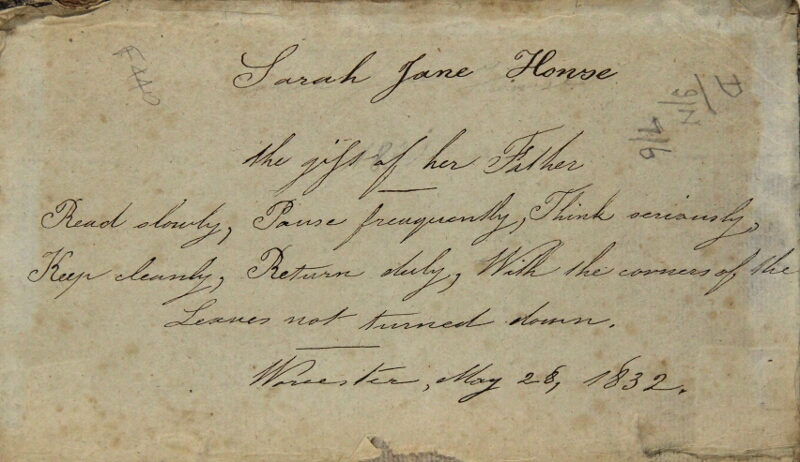 Sarah Jane House
the gift of her Father
Read slowly, Pause freaquently, Think seriously,
Keep cleanly, Return duly, With the corners of the
Leaves not turned down.
Worcester, May 28, 1832.